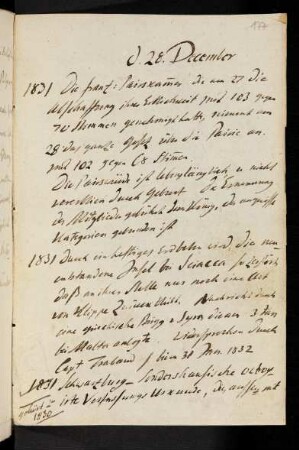 177
d. 28. December
1831 Die franz: Pairskammer die am 27 die
Abschaffung ihrer Erblichkeit mit 103 gegen
70 Stimmen genehmigt hatte, nimmt am
28 das ganze Gesetz über die Pairie an.
mit 102 gegen 68 Stimen
Die Pairswürde ist lebenslänglich u nicht
vererblich durch Geburt. Die Ernennung
der Mitglieder gebührt dem König, der an gewisse
Kategorien gebunden ist
1831 Durch ein heftiges Erdbeben wird die neu
entstandene Insel bei Sciacca so zerstört
daß an ihrer Stelle nur noch eine Art
von Klippe
eine griechische Brigg v Syra die am 3 Jan
bei Malta anlegte. Widersprochen durch
Capt / bis 30 Jan. 1832
1831 Schwarzburg-Sondershausische
Verfassungs Urkunde, die
1830